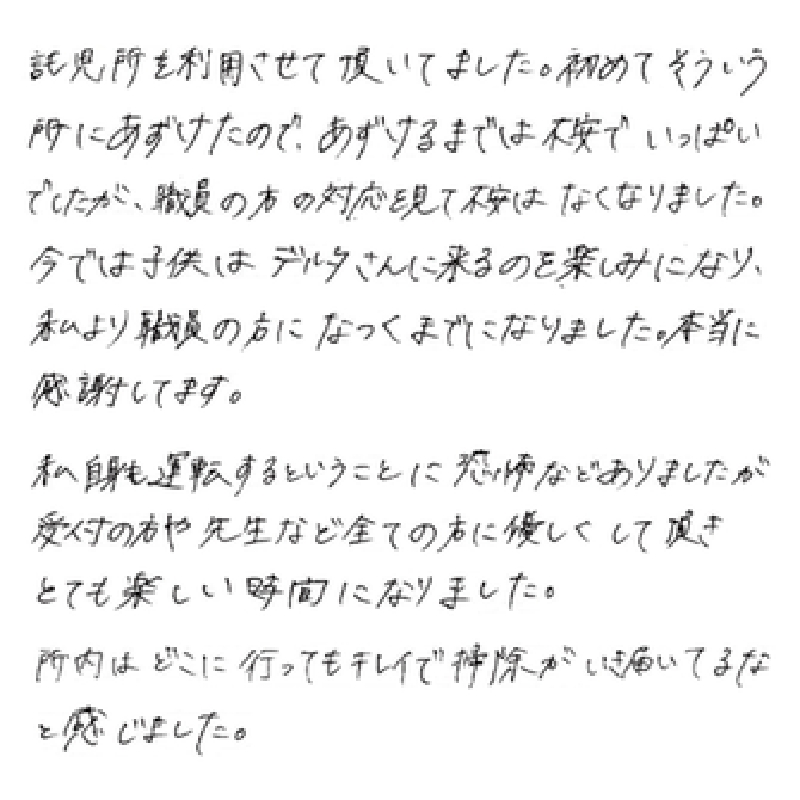 託児所を利用させて頂いてました。初めてそういう
所にあずけたので、あずけるまでは不安でいっぱい
でしたが、職員の方の対応を見て不安はなくなりました。
今では子供はデルタさんに来るのを楽しみになり、
私より職員の方になつくまでになりました。本当に
感謝してます。
私自身も運転するということに恐怖などありましたが
受付の方や先生など全ての方に優しくして頂き
とても楽しい時間になりました。
所内はどこに行ってもキレイで掃除がいき届いてるな
と感じました。